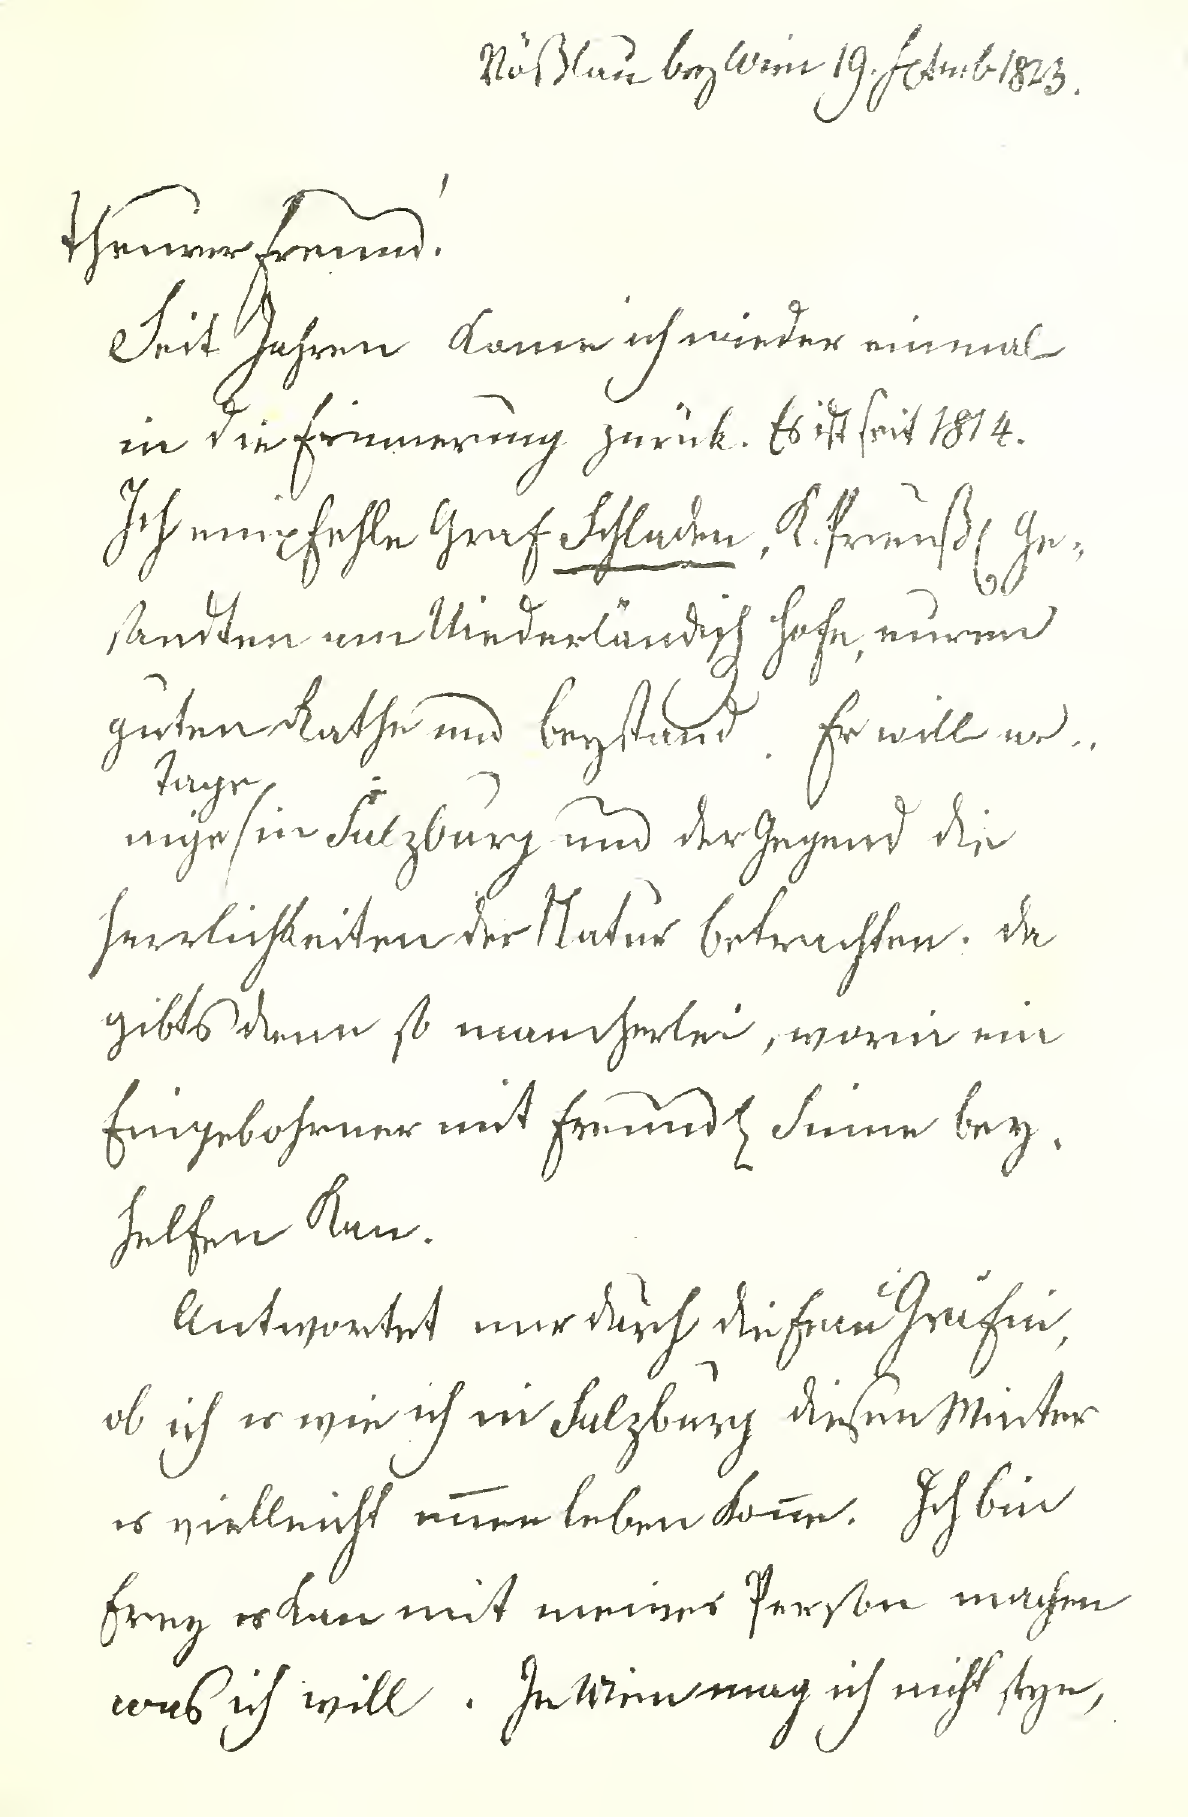 Vößlau bey Wien 19. Septemb 1823.
Theurer Freund!
Seit Jahren kome ich wieder einmal
in die Erinnerung zurück. Es ist seit 1814.
Ich empfehle Graf Schladen, K. Preuß Ge-
sandten am Niederländisch Hofe, eurem
guten Rathe und Beystand. Er will we..
Tage
nige in Salzburg und der Gegend die
Herrlichkeiten der Natur betrachten. Da
gibts denn so mancherlei, worin ein
Eingebohrner mit Freundl Sinne bey.
helfen kan.
Antwortet mir durch die Frau Gräfin,
ob ich wie ich in Salzburg diesen Winter
vielleicht leben kone. Ich bin
frey kan mit meiner Person machen
was ich will. In Wien mag ich nicht seyn,